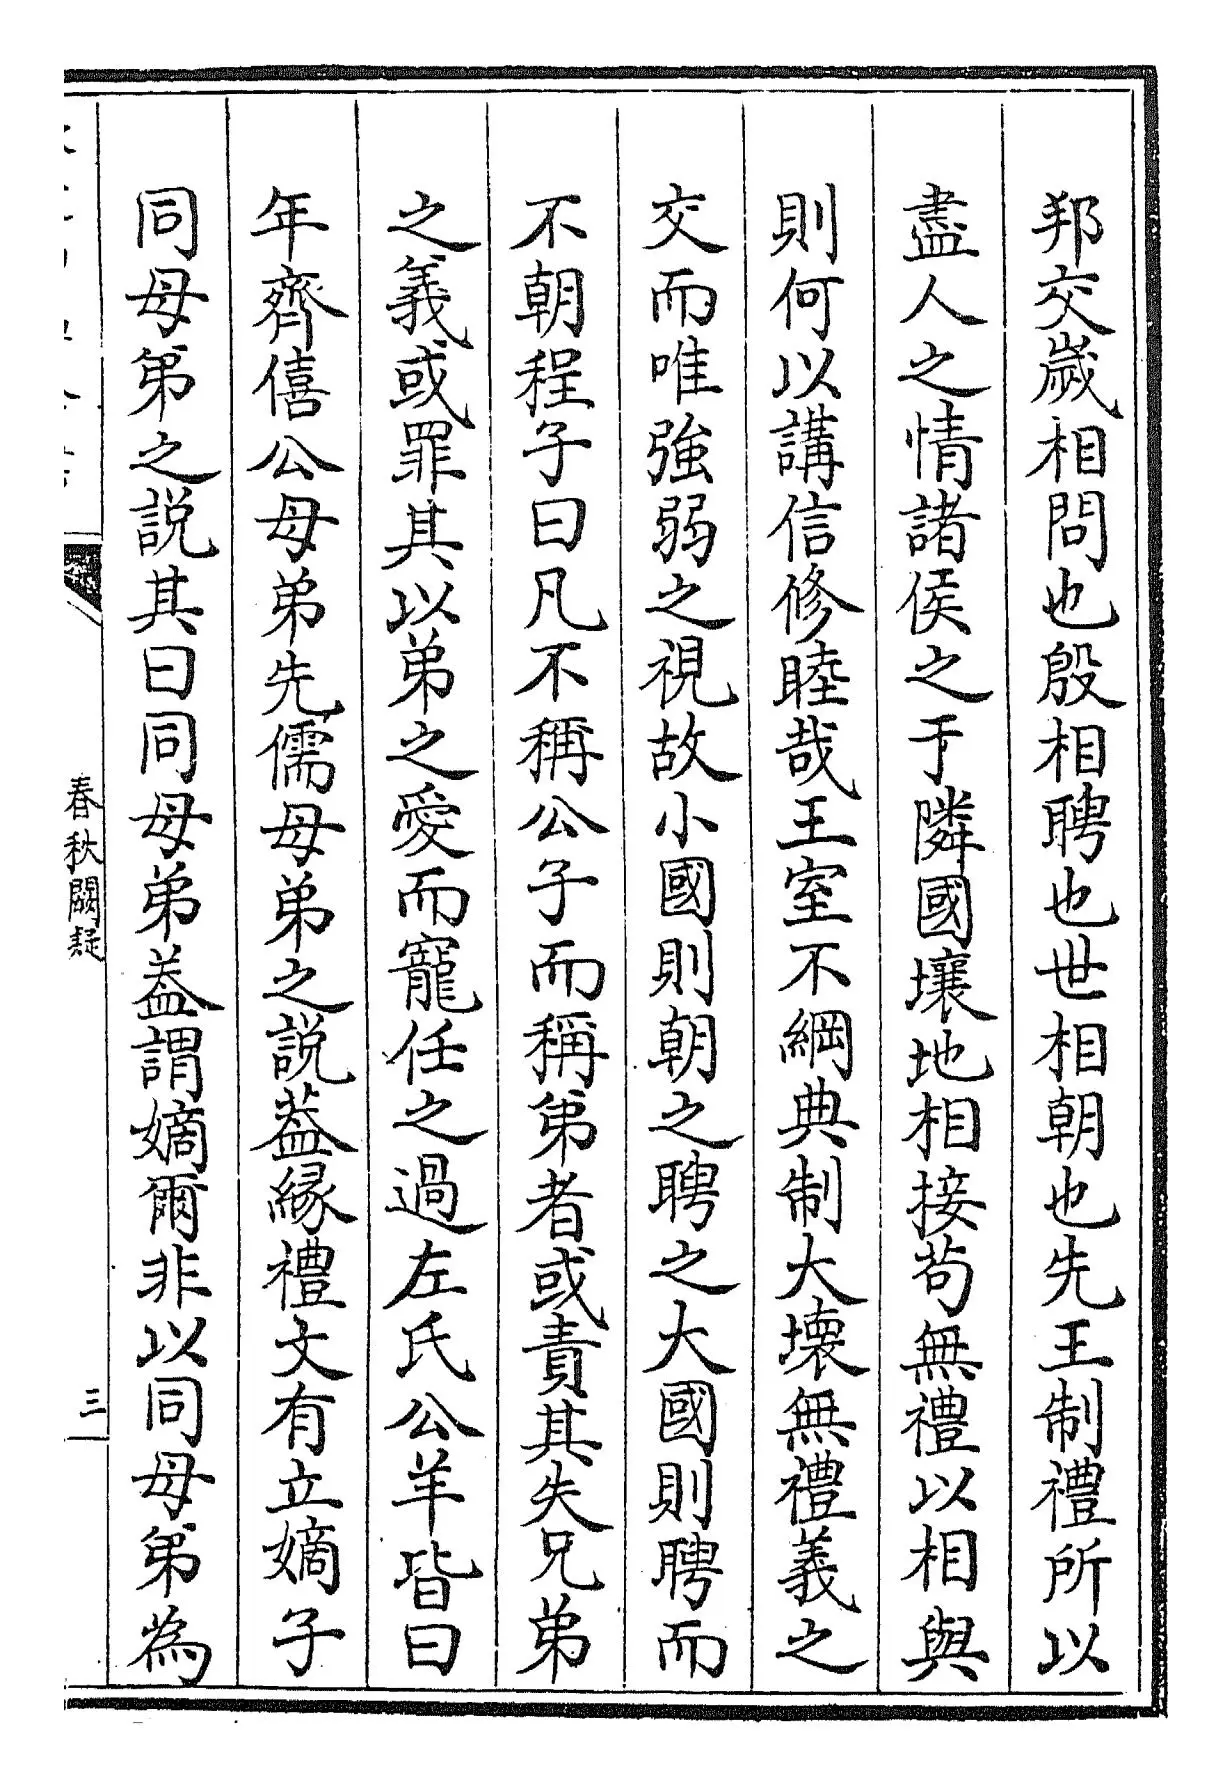 邦交歲相問也殷相聘也世相朝也先王制禮所以
盡人之情諸侯之于隣國壤地相接茍無禮以相與
則何以講信修睦哉王室不綱典制大壊無禮義之
交而唯強弱之視故小國則朝之聘之大國則聘而
不朝程子曰凡不稱公子而稱弟者或責其失兄弟
之義或罪其以弟之愛而寵任之過左氏公羊皆曰
年齊僖公母弟先儒母弟之説葢縁禮文有立嫡子
同母弟之説其曰同母弟葢謂嫡爾非以同母弟為
春秋闕疑
三